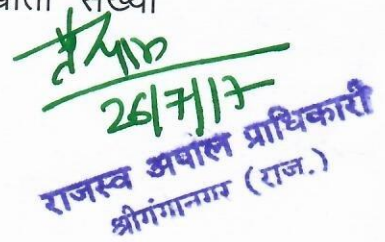 संख्या
26/7/17
राजस्व अपील प्राधिकारी
श्रीगंगानगर (राज.)